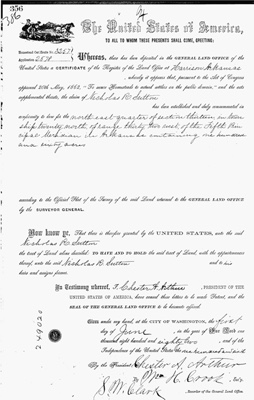 356
The United States of America,
TO ALL TO WHOM THESE PRESENTS SHALL COME, GREETING:
Homestead Certificate No.
Application
Whereas, there has been deposited in the GENERAL LAND OFFICE of the
United States a CERTIFICATE of the Register of the Land Office at Harrison Arkansas
, whereby it appears that, pursuant to the Act of Congress
approved 20th May, 1862, "To secure Homesteads to actual settlers on the public domain," and the acts
supplemental thereto, the claim of Nicholas R Sutton
has been established and duly consummated in
conformity to law for the north east quarter of section thirteen in town
ship twenty north of range thirty two west of the Fifth Prin
cipal Meridian in Arkansas containing one hundred
and sixty acres
according to the Official Plat of the Survey of the said Land returned to the GENERAL LAND OFFICE by
the SURVEYOR GENERAL.
Now know ye, That there is therefore granted by the UNITED STATES, unto the said
Nicholas R Sutton
the tract of Land above described: TO HAVE AND TO HOLD the said tract of Land, with the appurtenances
thereof, unto the said Nicholas R Sutton and to his
heirs and assigns forever.
In Testimony whereof, I Chester A Arthur, PRESIDENT OF THE
UNITED STATES OF AMERICA, have caused these letters to be made Patent, and the
SEAL OF THE GENERAL LAND OFFICE to be hereunto affixed.
Given under my hand, at the CITY OF WASHINGTON, the first
day of June, in the year of Our Lord one thousand
eight hundred and eighty two, and of the
Independence of the United States the one hundred and sixth
By the President: Chester A. Arthur
By Wm H. Crook, Sec'y.
S. W. Clark
Recorder of the General Land Office.